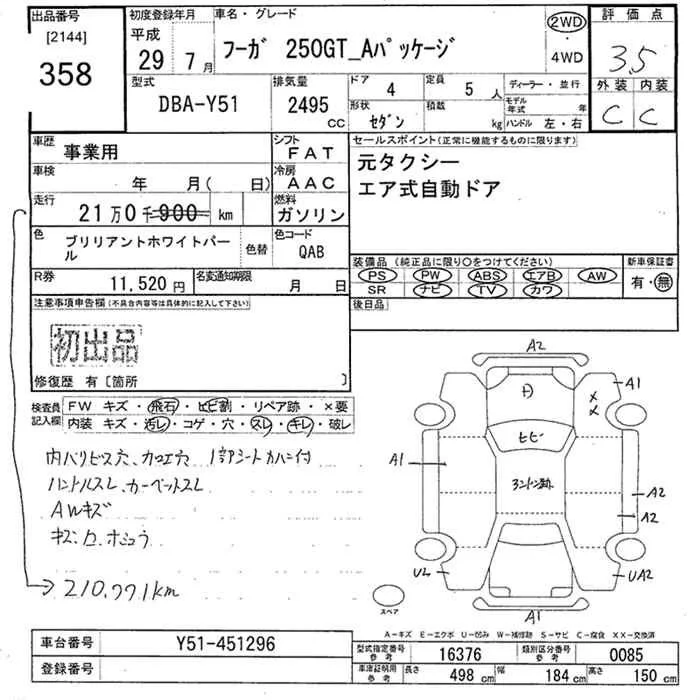 出品番号
[2144]
358
初度登録年月
平成
29 年 7 月
車名・グレード
フーガ 250GT_Aパッケージ
2WD
・
4WD
評価点
3.5
外装 内装
C C
型式
DBA-Y51
排気量
2495 CC
ドア 4
定員 5 人
形状 セダン
積載 kg
ディーラー・並行
モデル年式 年
ハンドル 左・右
車歴 事業用
シフト FAT
車検 年 月( 日)
冷房 AAC
走行 21万0千900 km
燃料 ガソリン
色 ブリリアントホワイトパール
色替
色コード QAB
R券 11,520 円
名変通知期限 月 日
セールスポイント(正常に機能するものに限ります)
元タクシー
エア式自動ドア
装備品 (純正品に限り○をつけてください)
PS PW ABS エアB AW
SR ナビ TV カワ
新車保証書
有・無
後日品
注意事項申告欄(不具合内容等は具体的に記入して下さい)
初出品
修復歴 有〔箇所 〕
検査員記入欄
FW キズ・飛石・ヒビ割・リペア跡・×要
内装 キズ・汚レ・コゲ・穴・スレ・キレ・破レ
内ハリビス穴、カロエ穴
ハンドルスレ、カーペットスレ
AWキズ
210,771km
A2
A1
ヒビ
A1
A2
A2
U2
UA2
A1
スペア
A-キズ E-エクボ U-凹み W-補修跡 S-サビ C-腐食 XX-交換済
車台番号 Y51-451296
登録番号
型式指定番号 参考 16376
類別区分番号 参考 0085
車庫証明用 参考 長さ 498 cm 幅 184 cm 高さ 150 cm